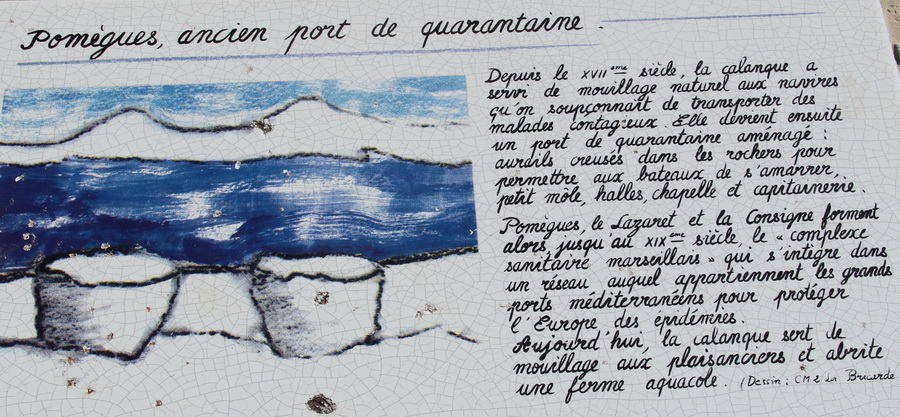 Pomègues, ancien port de quarantaine.
Depuis le XVIIeme siècle, la calanque a
servi de mouillage naturel aux navires
qu'on soupçonnait de transporter des
malades contagieux. Elle devient ensuite
un port de quarantaine aménagé :
aurails creusés dans les rochers pour
permettre aux bateaux de s'amarrer,
petit môle, halles, chapelle et capitainerie.
Pomègues, le Lazaret et la Consigne forment
alors, jusqu'au XIXeme siècle, le "complexe
sanitaire marseillais" qui s'intègre dans
un réseau auquel appartiennent les grands
ports méditerranéens pour protéger
l'Europe des épidémies.
Aujourd'hui, la calanque sert de
mouillage aux plaisanciers et abrite
une ferme aquacole. (Dessin : CM2 La Bricarde